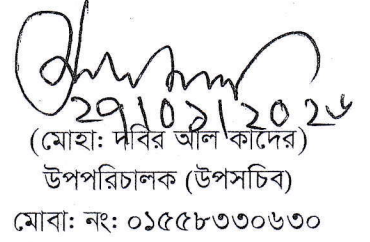 ২৭/০১/২০২৬
(মোহা: দবির আল কাদের)
উপপরিচালক (উপসচিব)
মোবা: নং: ০১৫৫৮৩৩০৬৩০